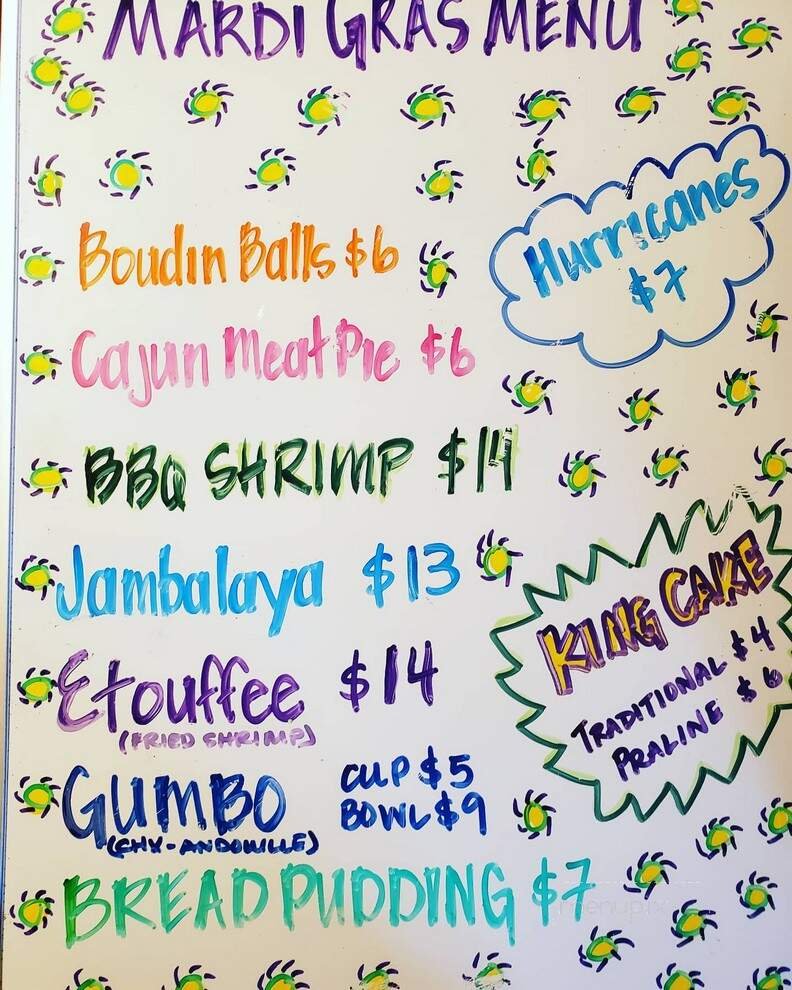 MARDI GRAS MENU
Hurricanes
$7
Boudin Balls $6
Cajun Meat Pie $6
BBQ SHRIMP $14
Jambalaya $13
KING CAKE
TRADITIONAL $4
PRALINE $6
Etouffee $14
(FRIED SHRIMP)
GUMBO CUP $5
BOWL $9
(CHX-ANDOUILLE)
BREAD PUDDING $7